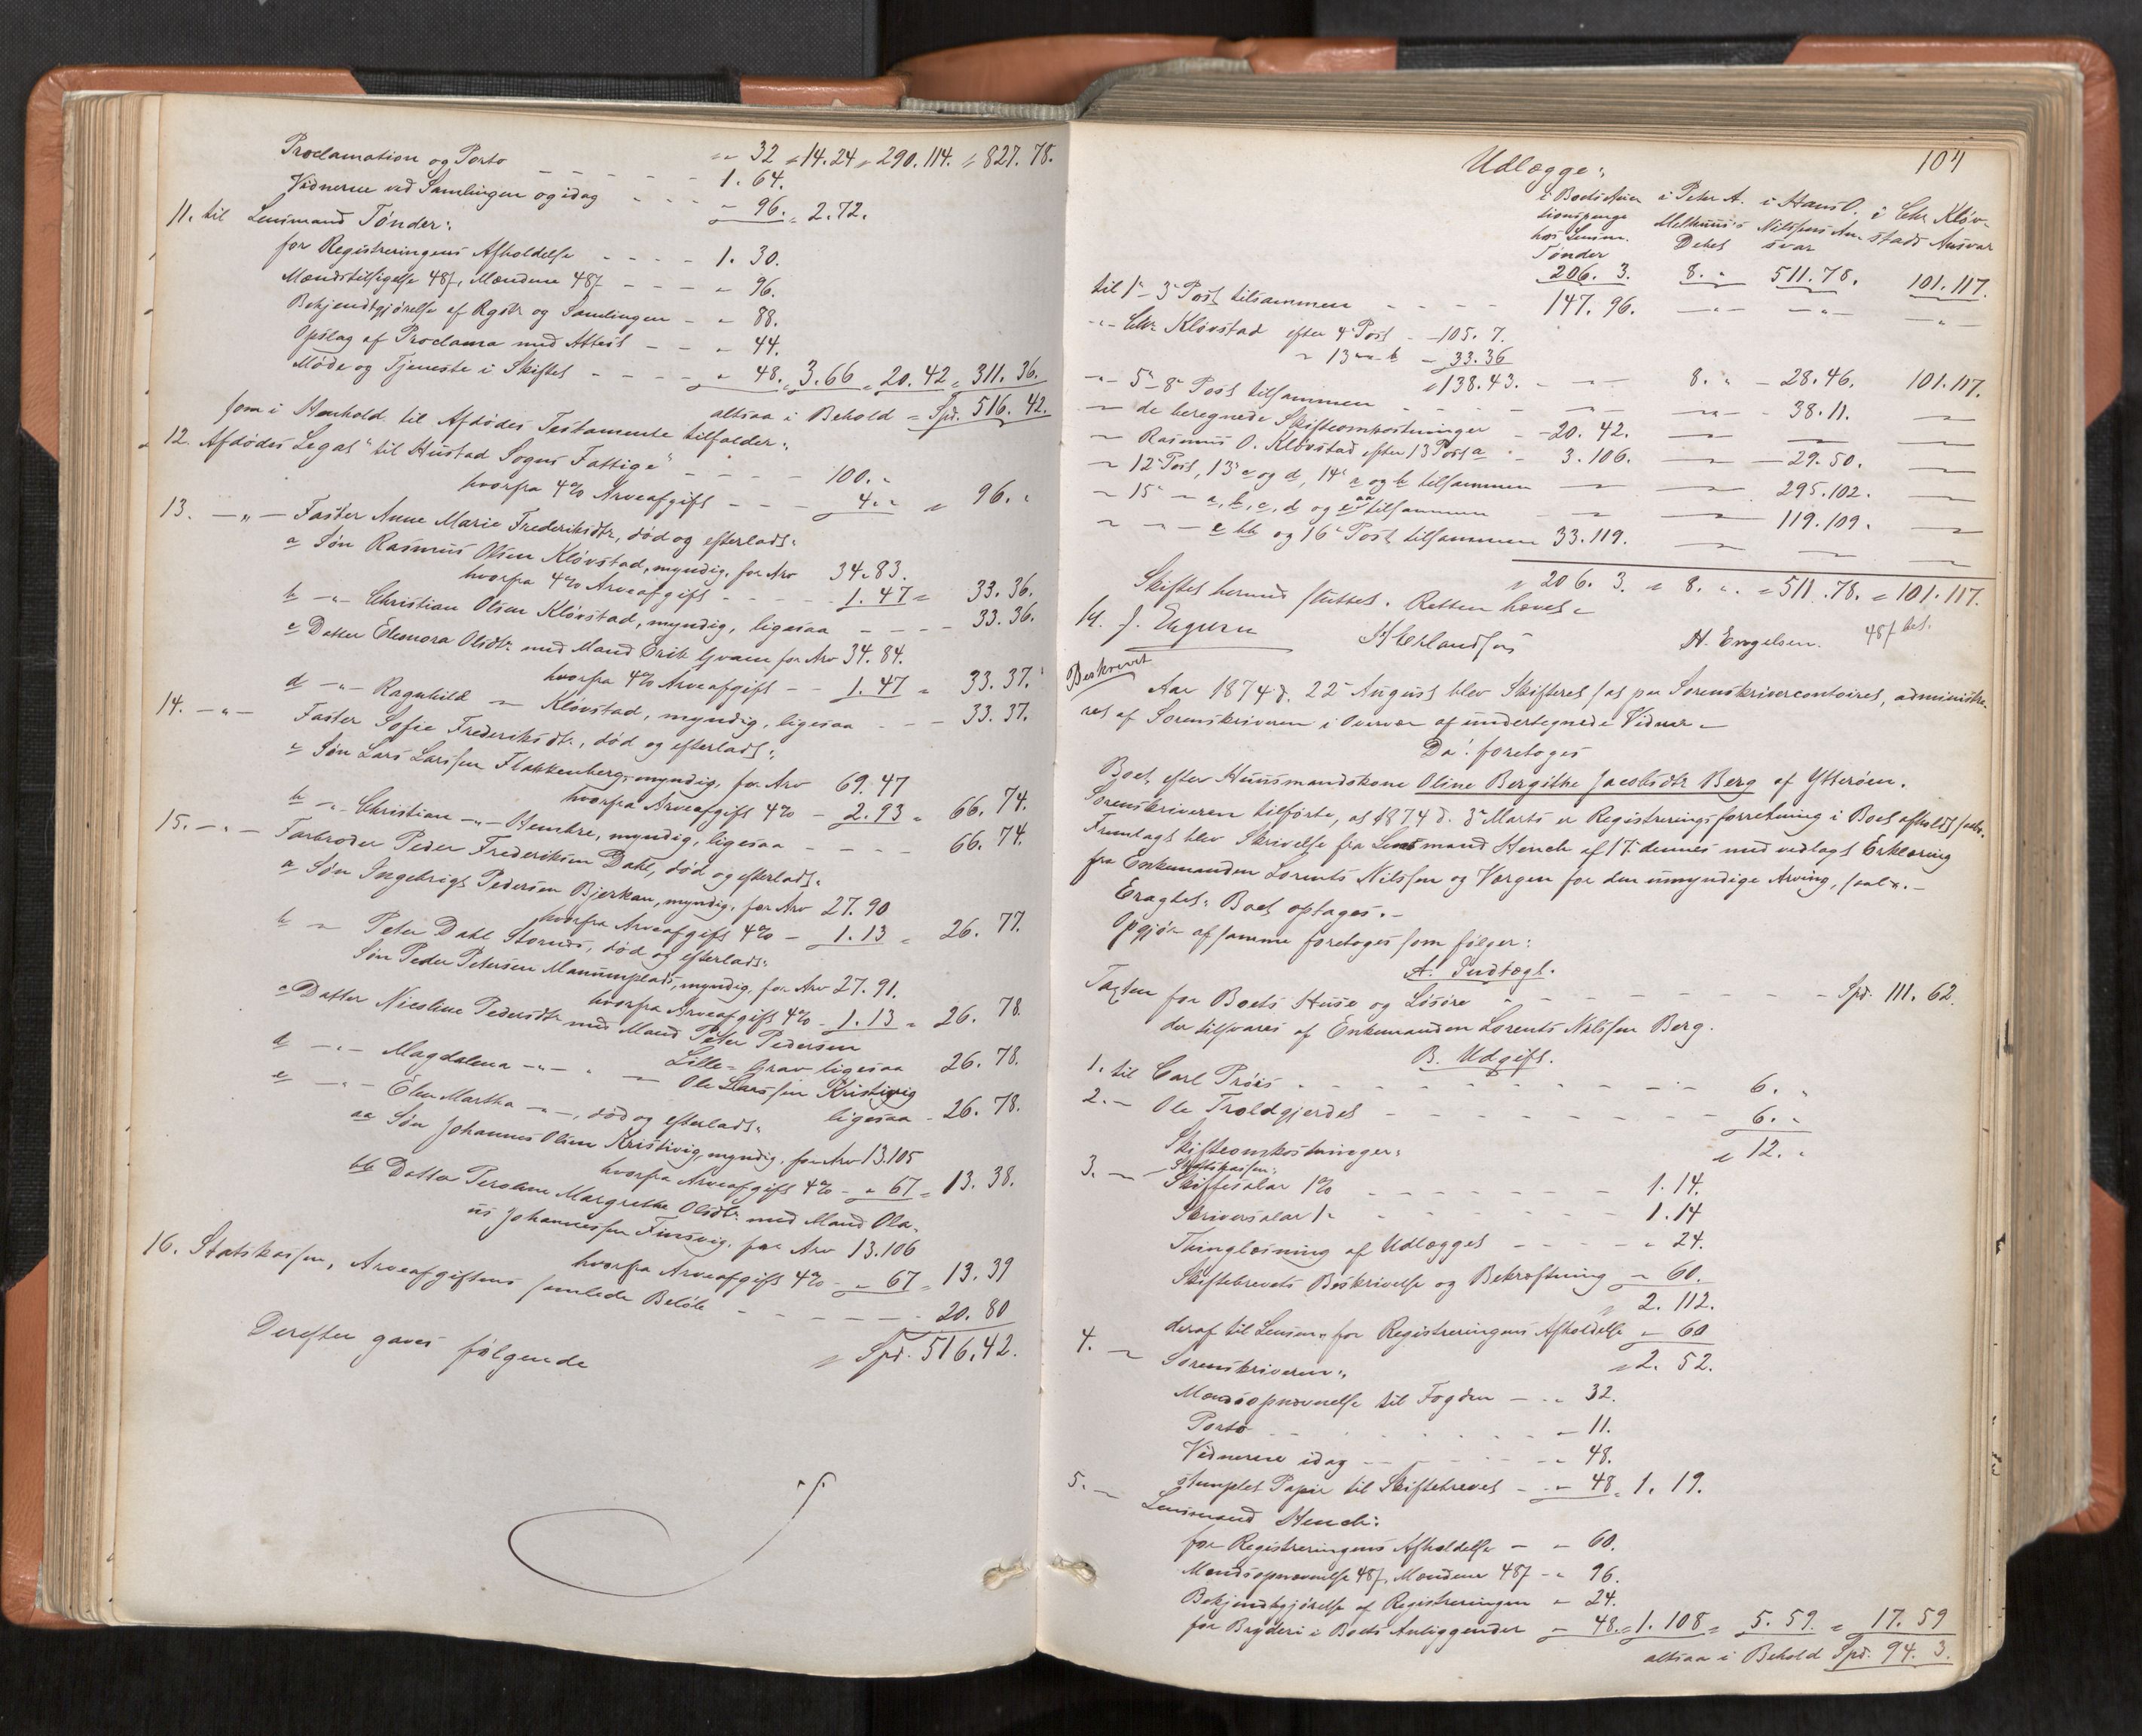 Proclamation og Porto - - - - - „ 32 „ 14.24 „ 290.114. „ 827.78.
Vidnerne ved Samlingen og idag - - - 1. 64.
„ 96. „ 2.72.
11. til Lensmand Tønder:
for Registreringens Afholdelse - - - - 1. 30.
Mændstilsigelse 48f, Mændene 48f - - - „ 96.
Bekjendtgjørelse af Rgstr og Samlingen - „ 88.
Opslag af Proclama med Attest - - - „ 44.
Møde og Tjeneste i Skiftet - - - - „ 48. „ 3.66 „ 20.42 „ 311.36.
altsaa i Behold „ Spd. 516.42.
som i Henhold til Afdødes Testamente tilfalder:
12. Afdødes Legat "til Hustad Sogns Fattige" - - - 100. „
hvorfra 4% Arveafgift - - - 4. „ „ 96. „
13. -„- Faster Anne Marie Frederiksdtr, død og efterladt:
a Søn Rasmus Olsen Kløvstad, myndig, for Arv 34.83.
hvorfra 4% Arveafgift - - - - 1.47 „ 33.36.
b -„- Christian Olsen Kløvstad, myndig, ligesaa - - - 33.36.
c Datter Eleonora Olsdtr med Mand Erik Qvam for Arv 34.84.
hvorfra 4% Arveafgift - - 1.47 „ 33.37.
d -„- Ragnhild -„- Kløvstad, myndig, ligesaa - - - 33.37.
14. -„- Faster Sofie Frederiksdtr., død og efterladt:
a Søn Lars Larssen Flakkenberg, myndig, for Arv 69.47
hvorfra Arveafgift 4% - 2.93 „ 66.74.
b -„- Christian -„- Henbre, myndig, ligesaa - - - - 66.74.
15. -„- Farbroder Peder Frederiksen Dahl, død og efterladt:
a Søn Ingebrigt Pedersen Bjerkan, myndig, for Arv 27.90
hvorfra Arveafgift 4% - 1.13 „ 26.77.
b -„- Peter Dahl Stornes, død og efterladt:
Søn Peder Petersen , myndig, for Arv 27.91.
hvorfra Arveafgift 4% - 1.13 „ 26.78.
c Datter Nicoline Pedersdtr med Mand Peter Pedersen
Lille- ligesaa 26.78.
d -„- Magdalena -„- „ -„- Ole Larssen Kristivig
ligesaa - 26.78.
e -„- Elen Martha -„-, død og efterladt:
aa Søn Johannes Olsen Kristivig, myndig, for Arv 13.105
hvorfra Arveafgift 4% - „ 67 „ 13.38.
bb Datter Margrethe Olsdtr med Mand Ola-
us Johannessen Finsvig, for Arv 13.106
hvorfra Arveafgift 4% - „ 67 „ 13.39
16. Statskassen, Arveafgiftens samlede Beløb - - - - - 20.80
„ Spd. 516.42.
Derefter gaves følgende
104
Udlægge:
i Boets Auc- i Peter A. i Hans O. i Chr. Kløv-
tionspenge Melhuus's Nilssens An- stads Ansvar
hos Lensm. Debet svar
Tønder
206. 3. 8. „ 511.78. 101.117.
til 1- 3 Post tilsammen - - - - 147.96. -„- -„- -„-
-„- Chr Kløvstad efter 4 Post - 105.7.
„ 13 b - 33.36
„ 138.43. - -„- 8. „ - 28.46. 101.117.
-„- 5-8 Post tilsammen - - - - -„- -„- - 38.11. -„-
-„- de beregnede Skifteomkostninger - 20.42. -„- -„- -„-
-„- Rasmus O. Kløvstad efter 13 Post a - 3.106. -„- - 29.50. -„-
-„- 12 Post, 13 c og d, 14 a og b tilsammen -„- -„- 295.102. -„-
-„- 15 -„- a, b, c, d og e aa tilsammen -„- -„- 119.109. -„-
-„- -„- e bb og 16 Post tilsammen 33.119. -„- -„- -„-
„ 206. 3. „ 8. „ „ 511.78. „ 101.117.
Skiftet hermed sluttet. Retten hævet.
H. Erlandsen N. Engelsen. 48f bet.
Beskrevet
Aar 1874 d. 22 August blev Skifteret sat paa Sorenskrivercontoiret, administre-
ret af Sorenskriveren i Overvær af undertegnede Vidner.
Da: foretoges
Boet efter Huusmandskone Oline Bergithe Jacobsdtr Berg af Ytterøen.
Sorenskriveren tilførte, at 1874 d. 3 Marts er Registreringsforretning i Boet afholdt saal.
Fremlagt blev Skrivelse fra Lensmand Hench af 17 dennes med vedlagt Erklæring
fra Enkemanden Lorents Nilssen og Værgen for den umyndige Arving, saal. -
Eragtet: Boet optages. -
Opgjør af samme foretoges som følger:
A. Indtægt.
Taxten for Boets Huse og Løsøre - - - - - - - Spd. 111.62.
der tilsvares af Enkemanden Lorents Nilssen Berg.
B. Udgift.
1. til Carl Prøis - - - - - - - - 6. „
2. - Ole Troldgjerdet - - - - - - 6. „
„ 12. „
Skifteomkostninger:
3. -„- Statskassen:
Skiftesalær 1% - - - - - - 1.14.
Skriversalær 1 - - - - - - 1.14
Thinglæsning af Udlægget - - - - „ 24.
Skiftebrevets Beskrivelse og Bekræftning - „ 60.
„ 2.112.
deraf til Lensm. for Registreringens Afholdelse - 60
„ 2.52.
4. -„- Sorenskriveren:
Mændsopnævnelse til Fogden - - „ 32.
Porto - - - - - - - „ 11.
Vidnerne idag - - - - - „ 48.
stemplet Papir til Skiftebrevet - - „ 48 „ 1.19.
5. -„- Lensmand Hench:
for Registreringens Afholdelse - „ 60.
Mændsopnævnelse 48f, Mændene 48f - „ 96.
Bekjendtgjørelse af Registreringen - „ 24.
for Bryderi i Boets Anliggender - „ 48. „ 1.108 „ 5.59. „ 17.59
altsaa i Behold Spd. 94.3.